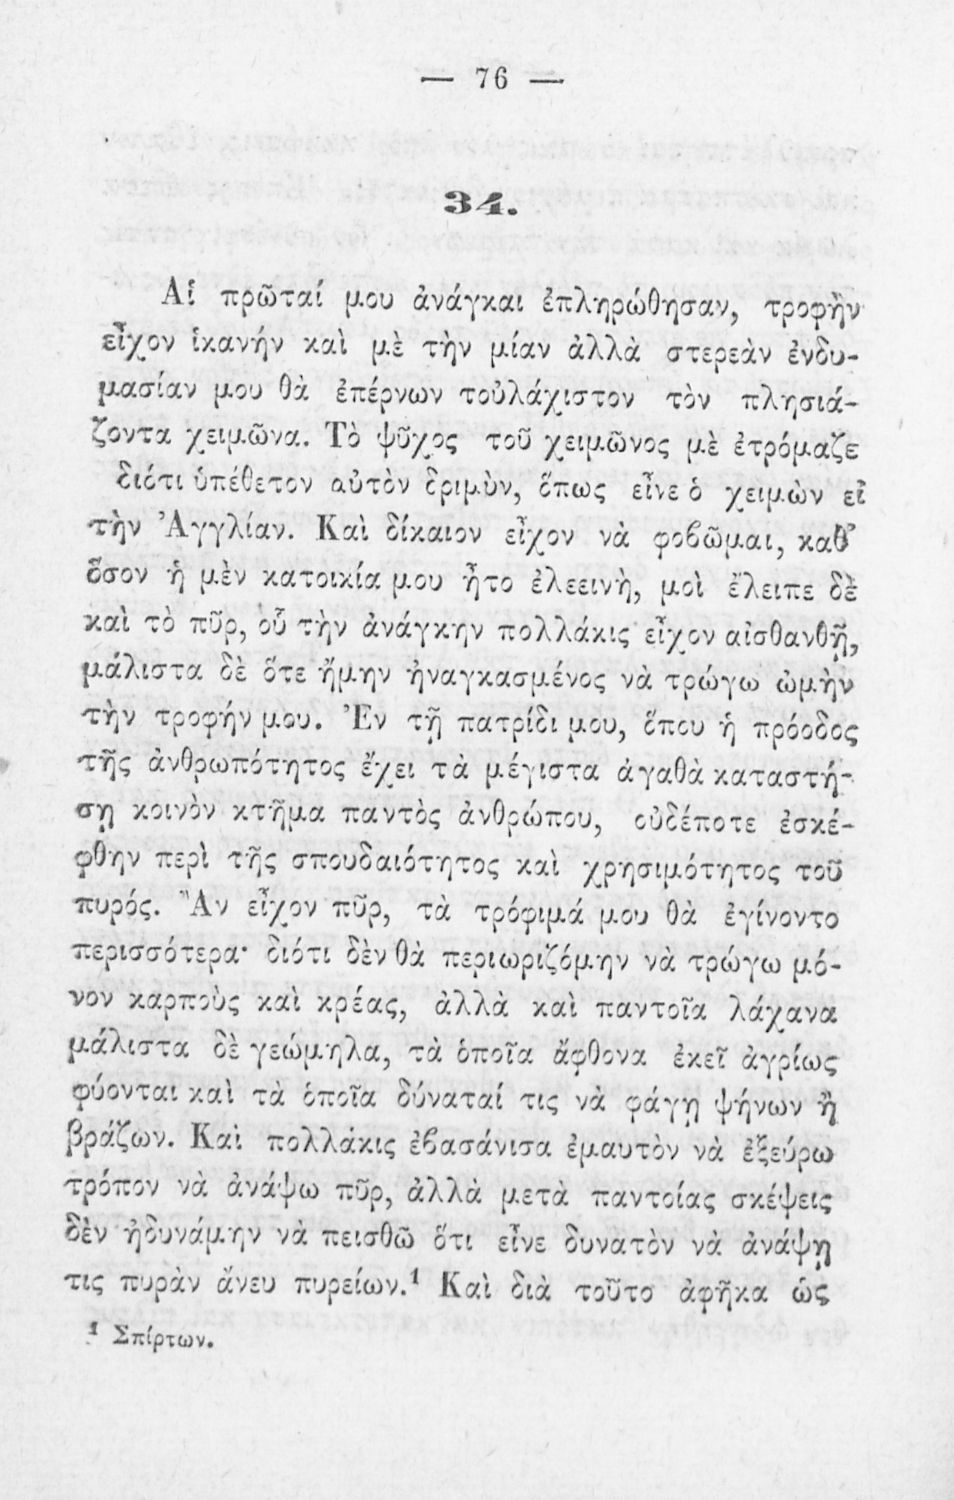 — 76 —
34.
Αἱ πρῶταί μου ἀνάγκαι ἐπληρώθησαν, τροφὴν
εἶχον ἱκανήν καὶ μὲ τὴν μίαν ἀλλὰ στερεὰν ἐνδυ-
μασίαν μου θὰ ἐπέρνων τοὐλάχιστον τὸν πλησιά-
ζοντα χειμῶνα. Τὸ ψῦχος τοῦ χειμῶνος μὲ ἐτρόμαζε
διότι ὑπέθετον αὐτὸν δριμὺν, ὅπως εἶνε ὁ χειμὼν εἰ
τὴν Ἀγγλίαν. Καὶ δίκαιον εἶχον νὰ φοβῶμαι, καθ’
ὅσον ἡ μὲν κατοικία μου ἦτο ἐλεεινὴ, μοὶ ἔλειπε δὲ
καὶ τὸ πῦρ, οὗ τὴν ἀνάγκην πολλάκις εἶχον αἰσθανθῆ,
μάλιστα δὲ ὅτε ἤμην ἠναγκασμένος νὰ τρώγω ὠμὴν
τὴν τροφήν μου. Ἐν τῇ πατρίδι μου, ὅπου ἡ πρόοδος
τῆς ἀνθρωπότητος ἔχει τὰ μέγιστα ἀγαθὰ καταστή-
σῃ κοινὸν κτῆμα παντὸς ἀνθρώπου, οὐδέποτε ἐσκέ-
φθην περὶ τῆς σπουδαιότητος καὶ χρησιμότητος τοῦ
πυρός. Ἂν εἶχον πῦρ, τὰ τρόφιμά μου θὰ ἐγίνοντο
περισσότερα· διότι δὲν θὰ περιωριζόμην νὰ τρώγω μό-
νον καρποὺς καὶ κρέας, ἀλλὰ καὶ παντοῖα λάχανα
μάλιστα δὲ γεώμηλα, τὰ ὁποῖα ἄφθονα ἐκεῖ ἀγρίως
φύονται καὶ τὰ ὁποῖα δύναταί τις νὰ φάγῃ ψήνων ἢ
βράζων. Καὶ πολλάκις ἐβασάνισα ἐμαυτὸν νὰ ἐξεύρω
τρόπον νὰ ἀνάψω πῦρ, ἀλλὰ μετὰ παντοίας σκέψεις
δὲν ἠδυνάμην νὰ πεισθῶ ὅτι εἶνε δυνατὸν νὰ ἀνάψῃ
τις πυρὰν ἄνευ πυρείων.¹ Καὶ διὰ τοῦτο ἀφῆκα ὡς
¹ Σπίρτων.